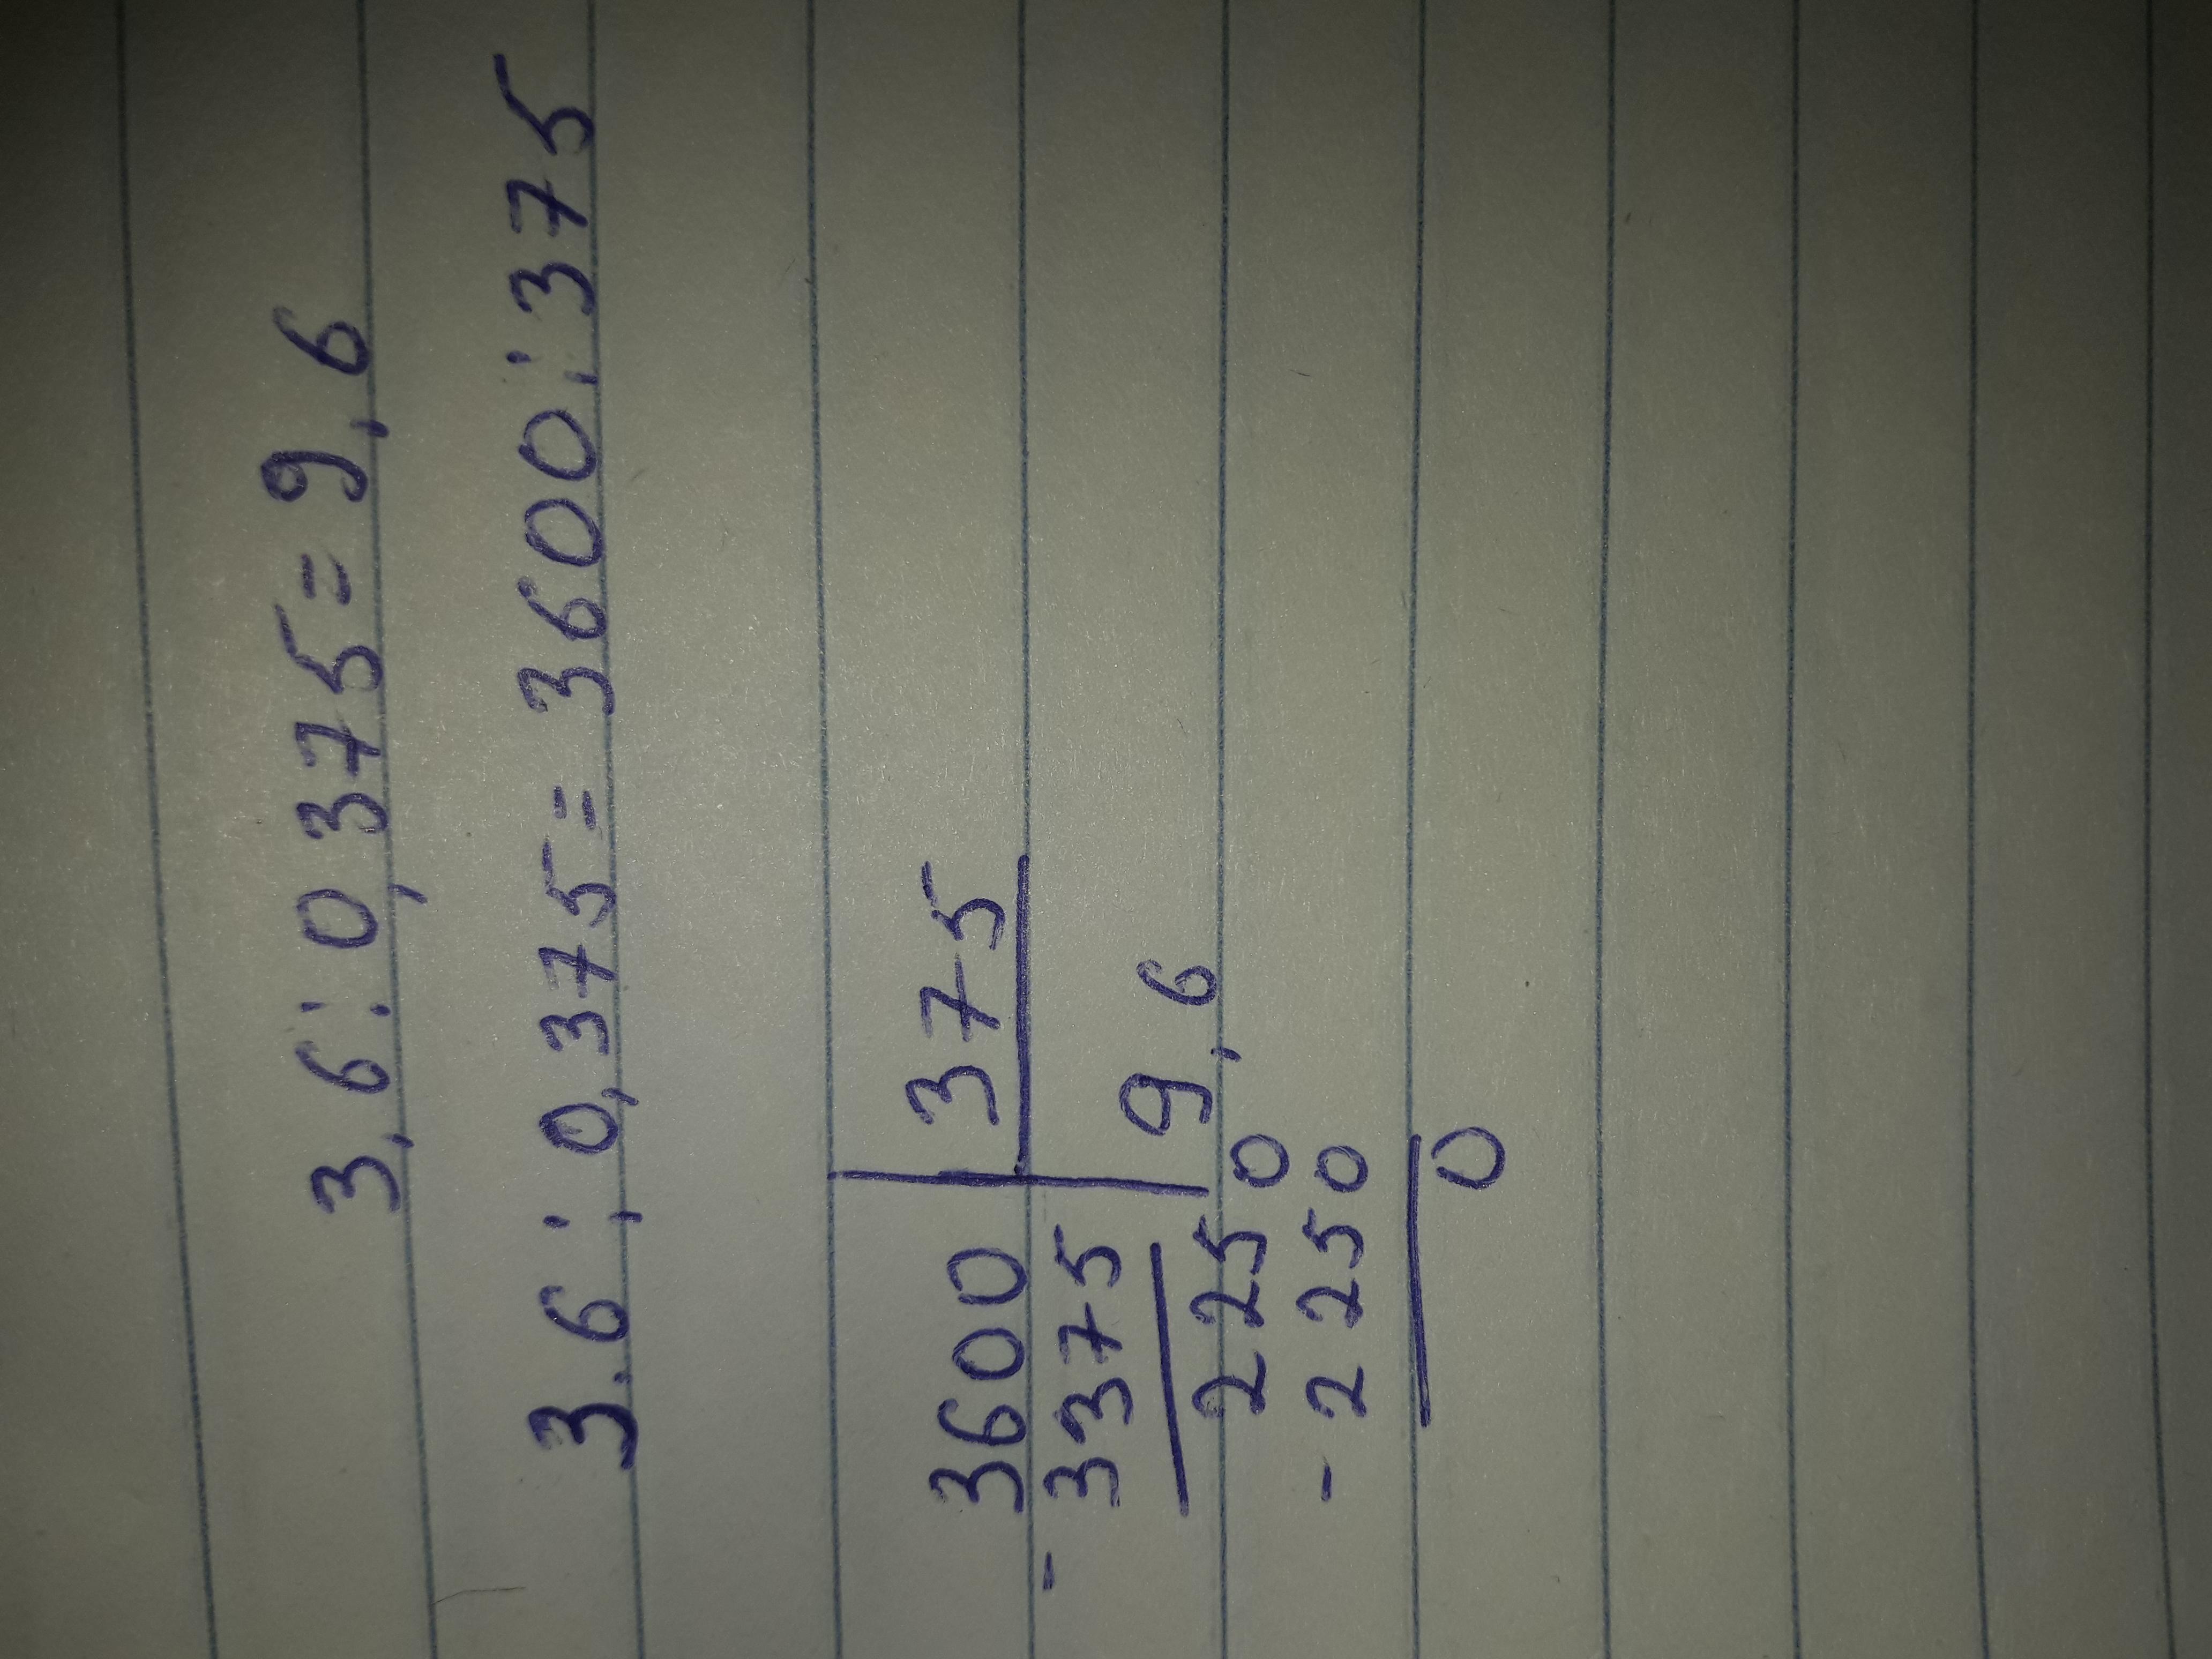 3,6:0,375=9,6
3,6:0,375=3600:375
3600 375
-3375 9,6
2250
-2250
0